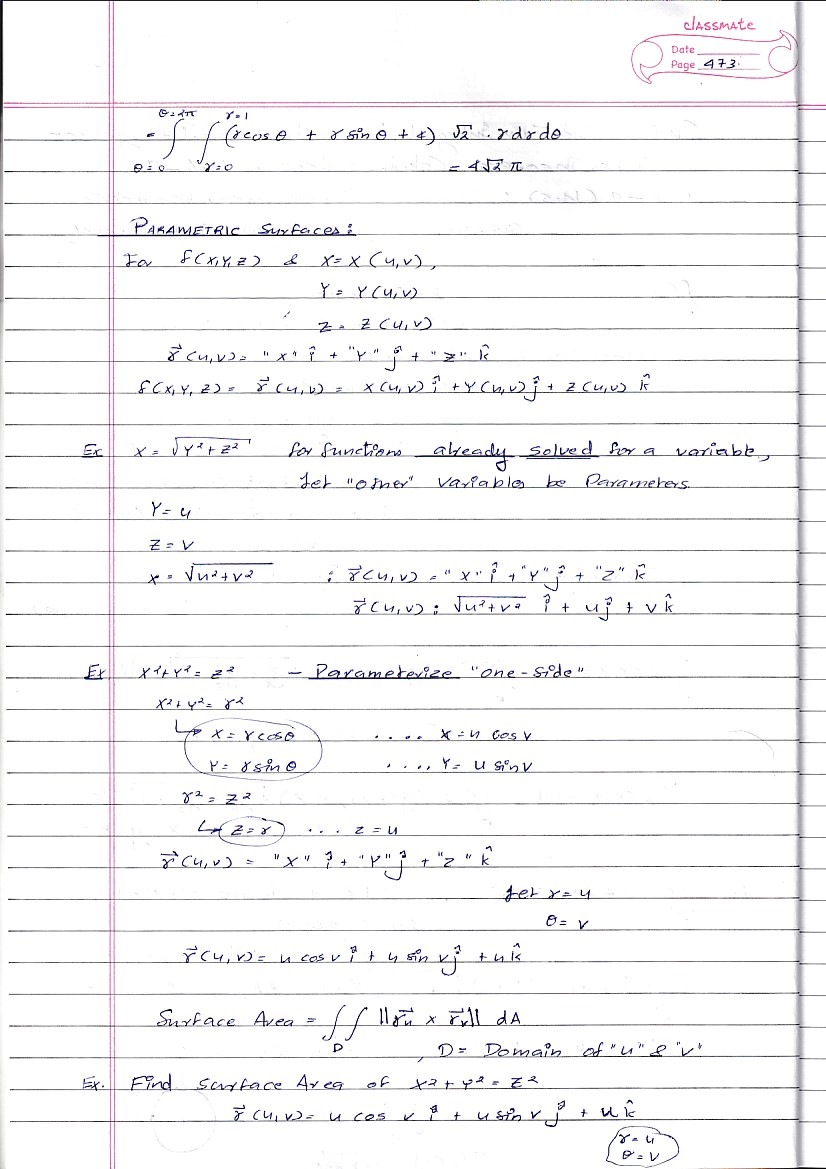 classmate
Date
Page 473.
θ=2π r=1
= ∫ ∫ (rcosθ + rsinθ + 4) √2 . rdrdθ
θ=0 r=0 = 4√2 π
PARAMETRIC Surfaces:
For f(x,y,z) & x = x(u,v),
Y = Y(u,v)
Z = Z(u,v)
r⃗(u,v) = "x" î + "Y" ĵ + "z" k̂
f(x,y,z) = r⃗(u,v) = x(u,v) î + Y(u,v) ĵ + z(u,v) k̂
Ex x = √Y²+z² for functions already solved for a variable,
Let "other" variables be Parameters.
Y = u
Z = v
x = √u²+v² : r⃗(u,v) = "x" î + "Y" ĵ + "Z" k̂
r⃗(u,v) : √u²+v² î + u ĵ + v k̂
Ex x²+Y² = z² - Parameterize "one-side"
x²+Y² = r²
↳ x = rcosθ .... x = u cos v
Y = rsinθ .... Y = u sin v
r² = z²
↳ z = r ... z = u
r⃗(u,v) = "x" î + "Y" ĵ + "z" k̂
Let r = u
θ = v
r⃗(u,v) = u cos v î + u sin v ĵ + u k̂
Surface Area = ∫∫ ||r⃗u x r⃗v|| dA
D , D = Domain of "u" & "v"
Ex. Find Surface Area of x²+Y² = z²
r⃗(u,v) = u cos v î + u sin v ĵ + u k̂
r = u
θ = v